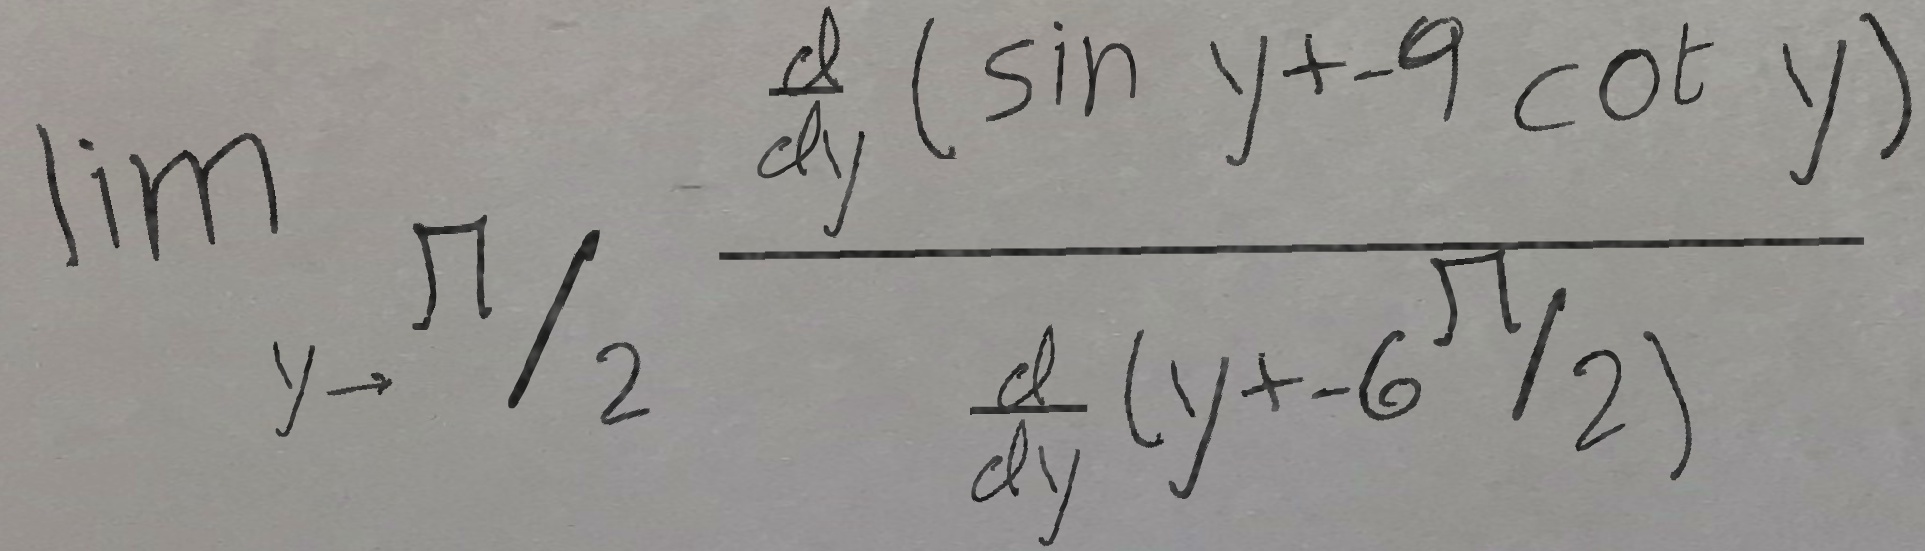 lim y→π/2 \frac{\frac{d}{dy}(sin y+-9 cot y)}{\frac{d}{dy}(y+-6π/2)}